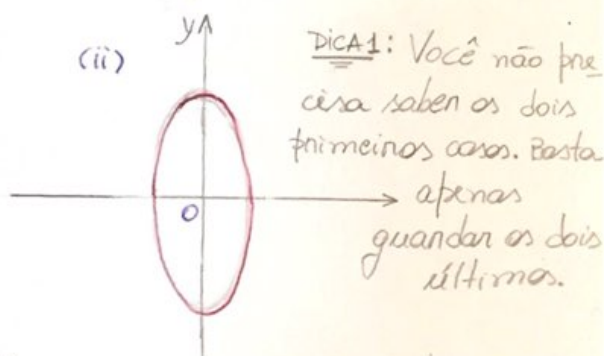 y
(ii)
DICA1: Você não pre
cisa saber os dois
primeiros casos. Basta
apenas
O
guardar os dois
últimos.